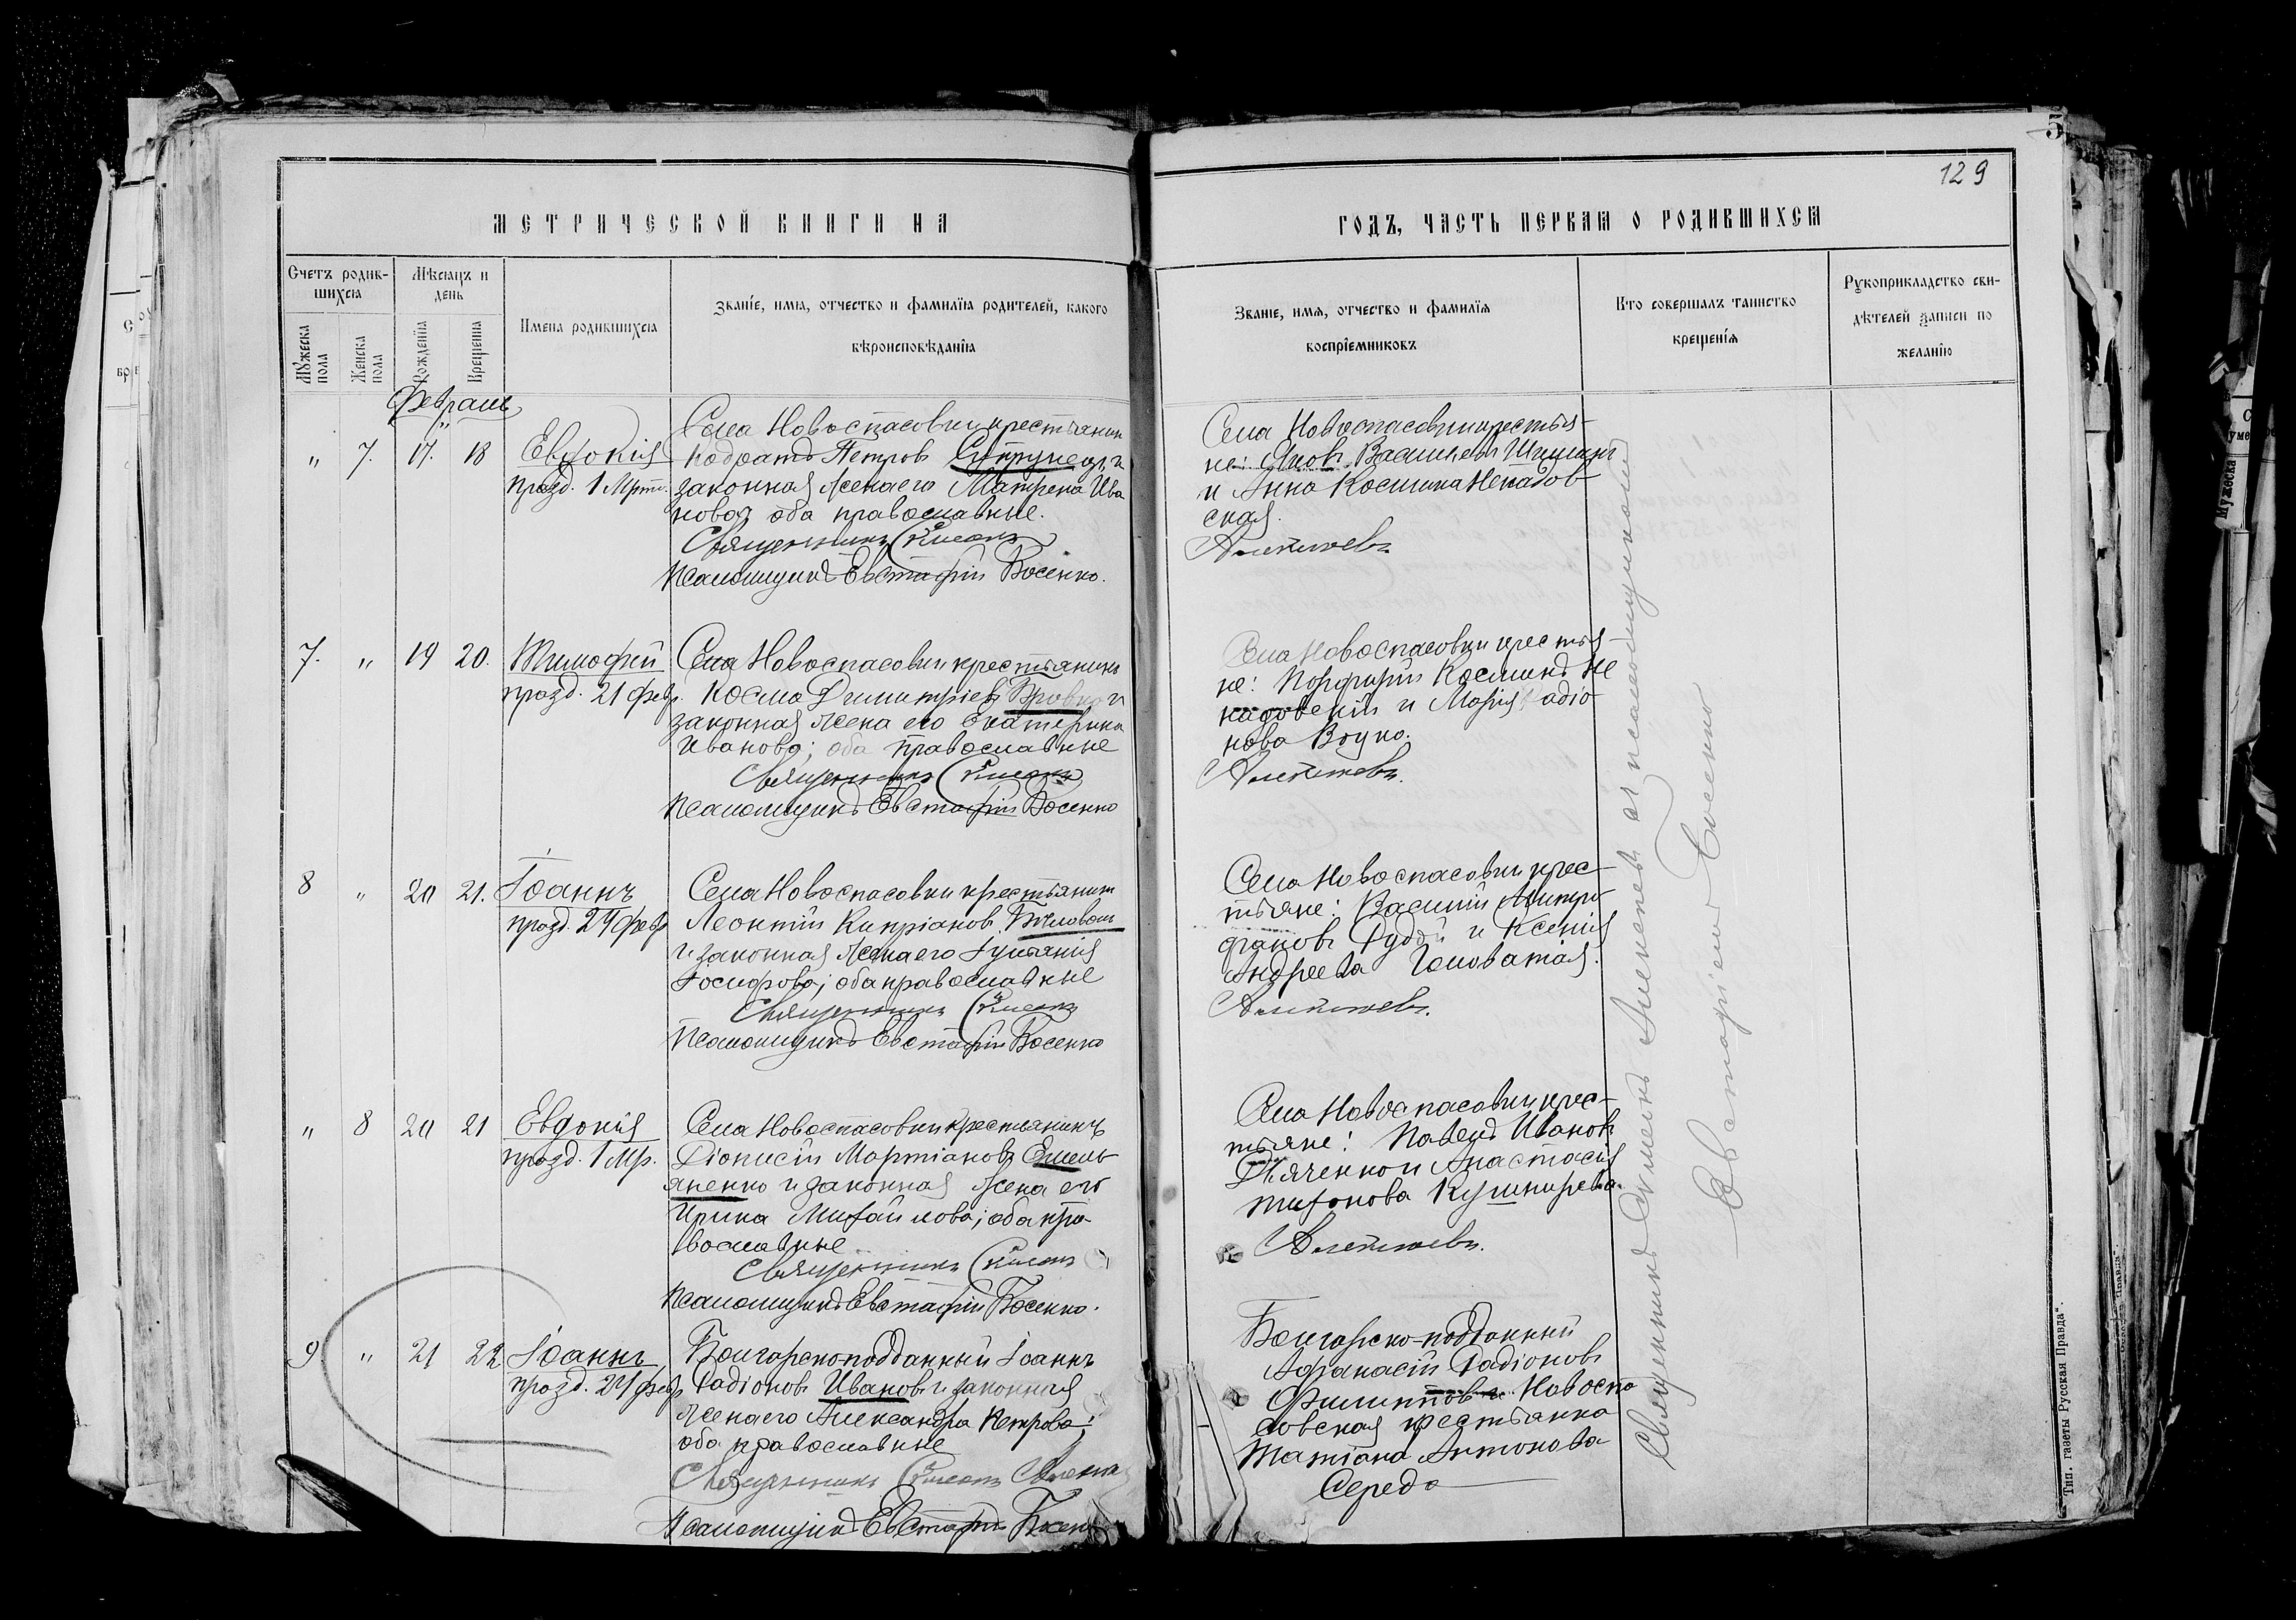 5
129
МЕТРИЧЕСКОЙ КНИГИ НА
ГОДЪ, ЧАСТЬ ПЕРВАЯ О РОДИВШИХСЯ
Счетъ родив-
шихся
Мѣсяцъ и
день
Мужеска
пола
Женска
пола
Рожденія
Крещенія
Имена родившихся
Званіе, имя, отчество и фамилія родителей, какого
вѣроисповѣданія
Званіе, имя, отчество и фамилія
воспріемниковъ
Кто совершалъ таинство
крещенія
Рукоприкладство сви-
дѣтелей записи по
желанію
Февраль
" 7. 17. 18 Евдокія
празд. 1 Мрт.
Села Новоспасовки крестьянин
Кодратъ Петровъ и
законная жена его Матрена Ива
нова оба православные.
Священникъ Симеонъ
Псаломщикъ Евстафій Босенко.
Села Новоспасовки крестья-
не: Яковъ Васильевъ
и Анна Косьмина Ненадов-
ская.
7. " 19 20. Тимофей
празд. 21 февр.
Села Новоспасовки крестьянинъ
Косма Димитріевъ Бровко и
законная жена его Екатерина
Иванова; оба православные
Священникъ Симеонъ
Псаломщикъ Евстафій Босенко
Села Новоспасовки крестья-
не: Порфирій Косминъ Не
надовскій и Марія Радіо-
нова
8 " 20 21. Іоаннъ
празд. 24 февр
Села Новоспасовки крестьянин
Леонтій Кипріановъ
и законная жена его Іуліанія
Іосифова; оба православные
Священникъ Симеонъ
Псаломщикъ Евстафій Босенко
Села Новоспасовки крес-
тьяне: Василій Митро
фановъ и Ксенія
Андреева Головатая.
" 8 20 21 Евдокія
празд. 1 Мр.
Села Новоспасовки крестьянинъ
Діонисій Мартіановъ Емель-
яненко и законная жена его
Ирина Михайлова; оба пра-
вославные
Священникъ Симеонъ
Псаломщикъ Евстафій Босенко.
Села Новоспасовки крес-
тьяне: Павелъ Ивановъ
Дяченко и Анастасія
Тихонова Кушнирева.
9 " 21 22 Іоаннъ
празд. 24 февр
Болгарско-подданный Іоаннъ
Радіоновъ Ивановъ и законная
жена его Александра Петрова;
оба православные
Священникъ Симеонъ
Псаломщикъ Евстафій
Болгарско-подданный
Афанасій Радіоновъ
Филипповъ и Новоспа
совская крестьянка
Татіана Антонова
Середа
Священникъ Симеонъ съ псаломщикомъ
Евстафіемъ Босенко
Тип. газеты „Русская Правда“.